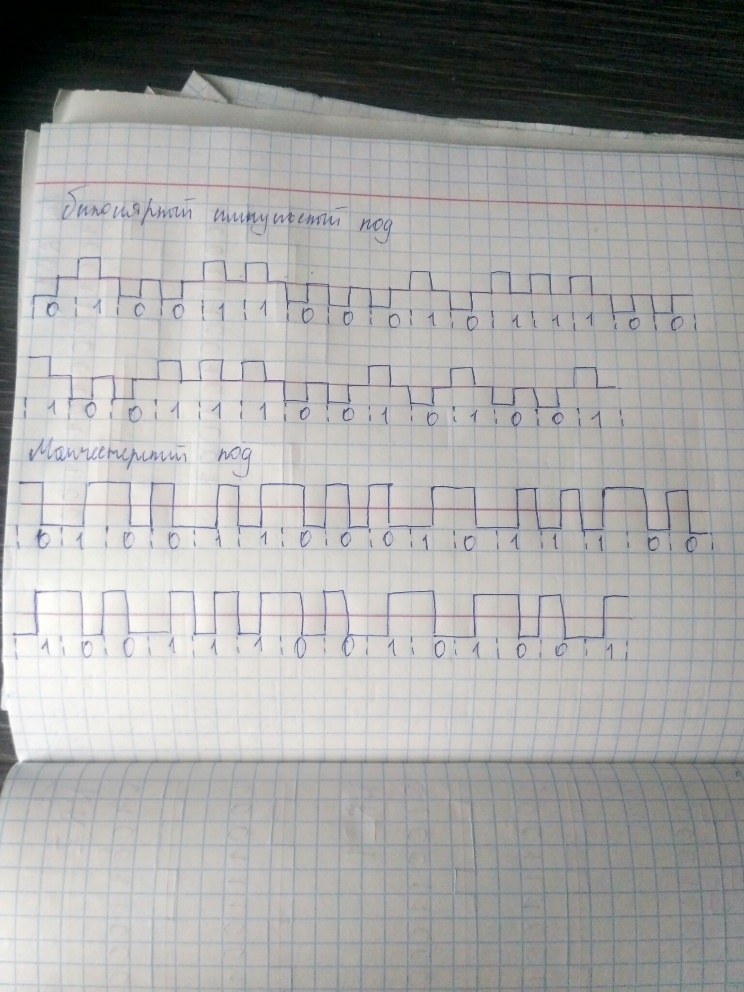 биполярный импульсный код
0 1 0 0 1 1 0 0 0 1 0 1 1 1 0 0
1 0 0 1 1 1 0 0 1 0 1 0 0 1
Манчестерский код
0 1 0 0 1 1 0 0 0 1 0 1 1 1 0 0
1 0 0 1 1 1 0 0 1 0 1 0 0 1